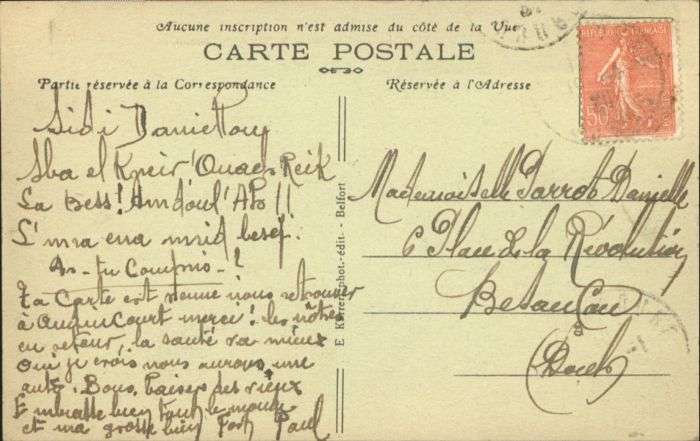 Aucune inscription n'est admise du côté de la Vue
CARTE POSTALE
Partie réservée à la Correspondance
Réservée à l'Adresse
REPUBLIQUE FRANÇAISE
50
Sidi Daniellou
Sba el Kreir Ouach Reik
La Bess! Amdoul'
L'mra ena mrid besef.
As-tu Compris-?
Ta Carte est venue nous retrouver
à Audincourt merci! les nôtres
en retour, la santé va mieux
Oui je crois nous aurons une
auto. Bons baisers des vieux
Embrasse bien tout le monde
et ma grosse bien fort Paul
E. Karrer, phot.-édit. - Belfort
Mademoiselle Parrot Danielle
6 Place de la Révolution
Besançon
Doubs